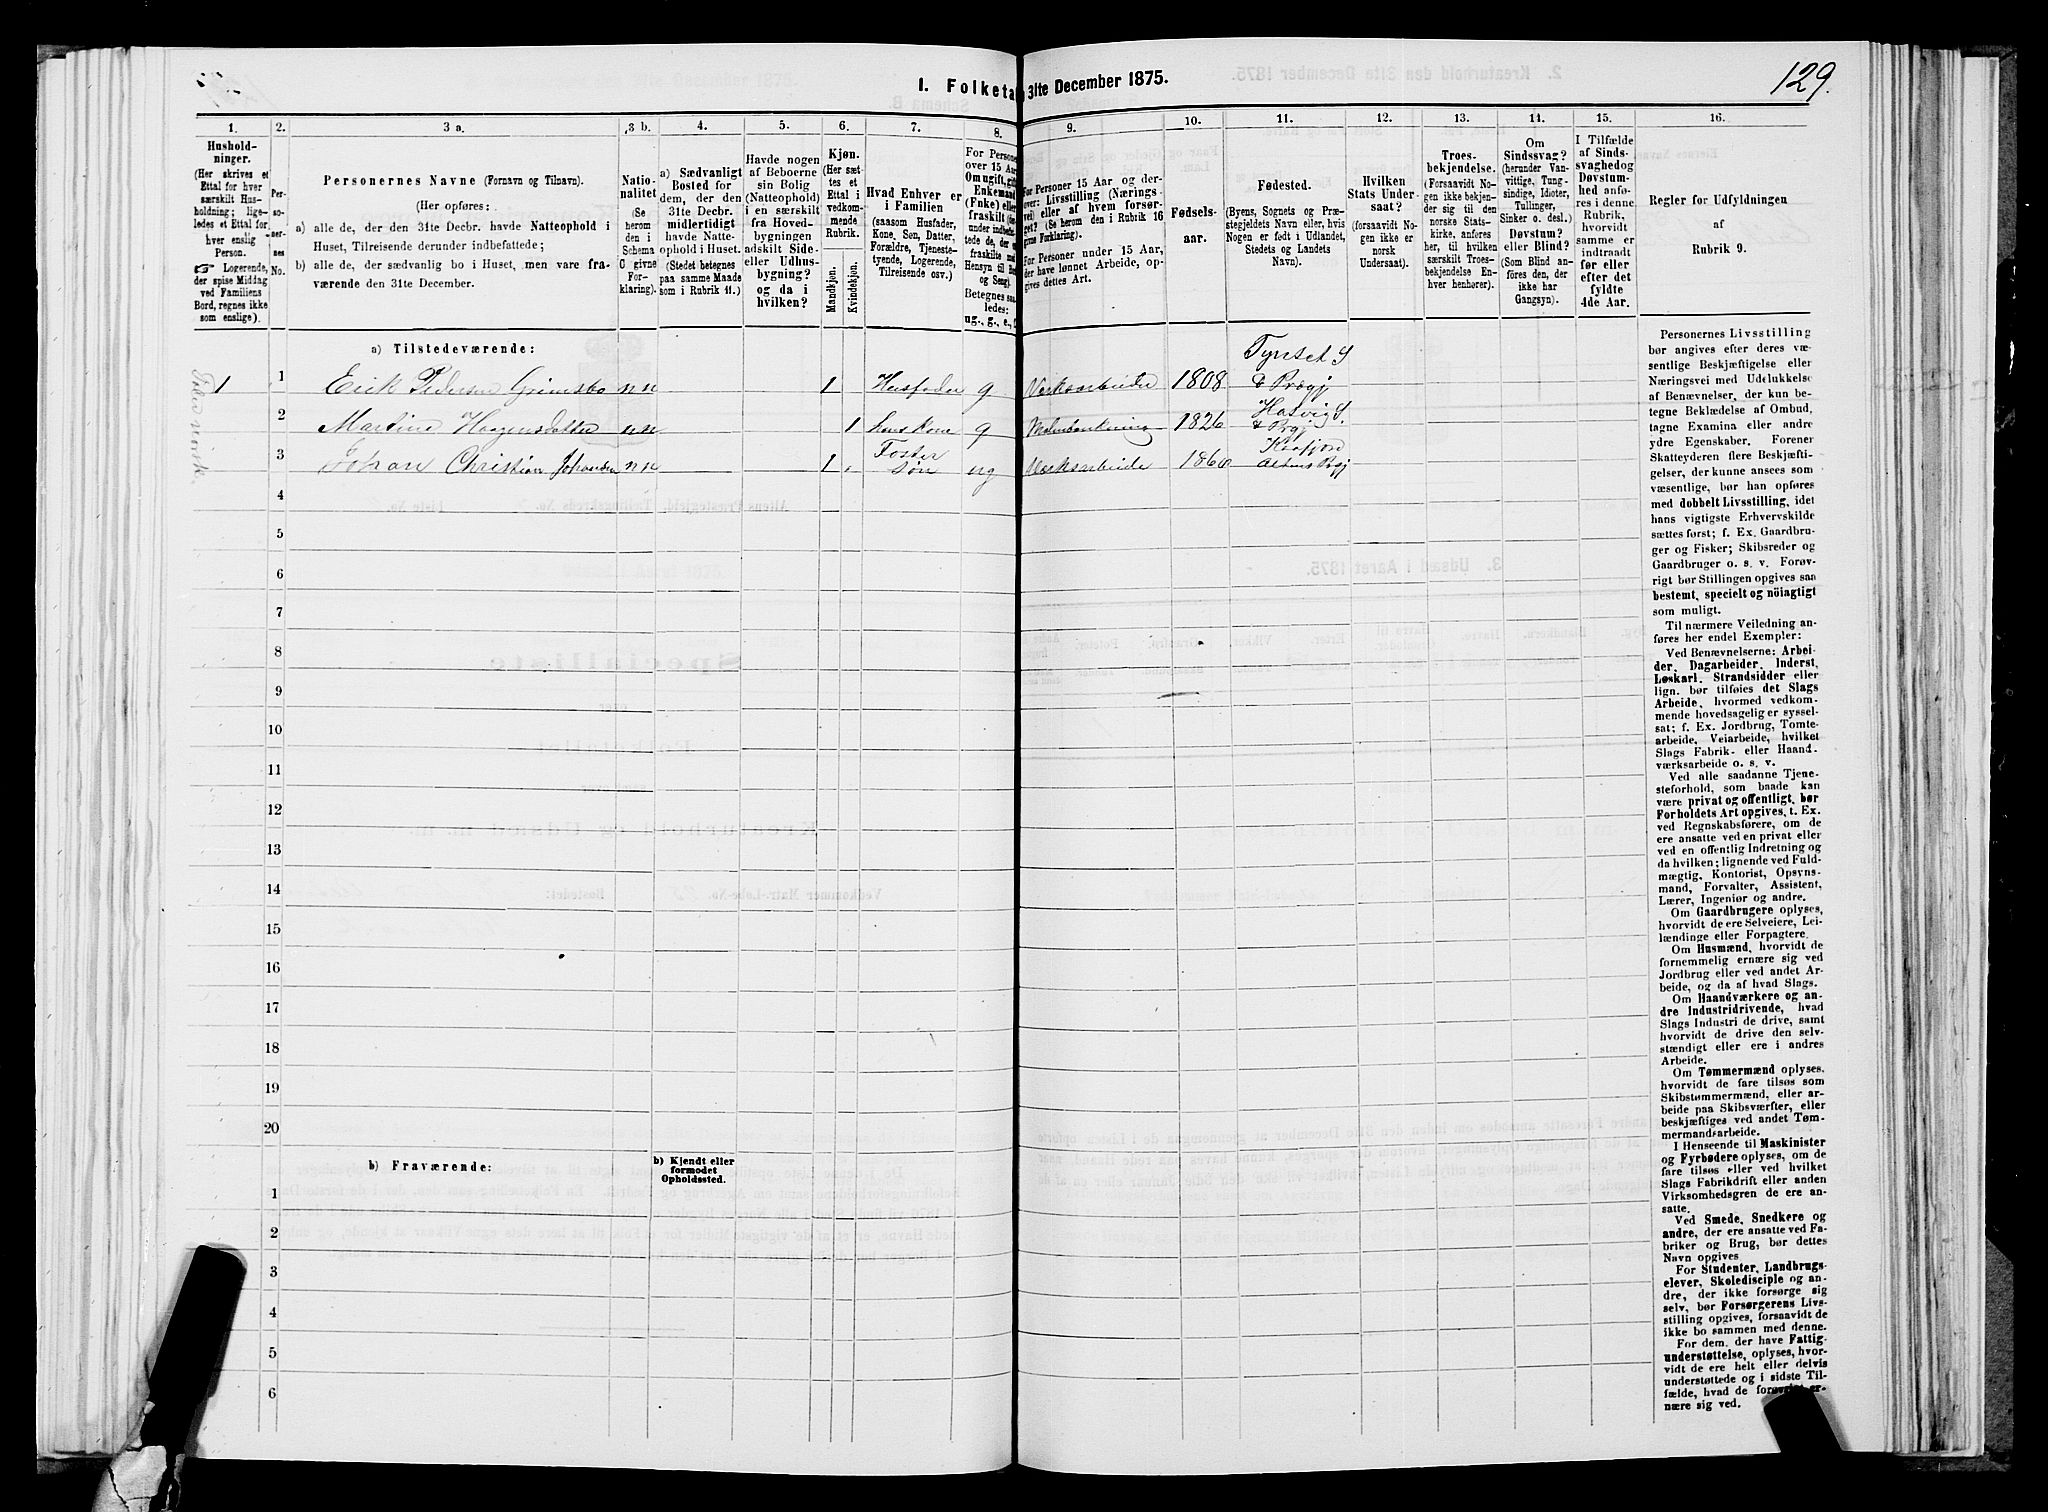 129.
I. Folketa
31te December 1875.
1.
2.
3 a.
3 b.
4.
5.
6.
7.
8.
9.
10.
11.
12.
13.
14.
15.
16.
Hushold-
ninger.
(Her skrives et
Ettal for hver
særskilt Hus-
holdning; lige-
ledes et Ettal for
hver enslig
Person.
Logerende,
der spise Middag
ved Familiens
Bord, regnes ikke
som enslige).
Per-
so-
ner-
nes
No.
Personernes Navne (Fornavn og Tilnavn).
(Her opføres:
a) alle de, der den 31te Decbr. havde Natteophold i
Huset, Tilreisende derunder indbefattede;
b) alle de, der sædvanlig bo i Huset, men vare fra-
værende den 31te December.
Natio-
nalitet
(Se
herom
den i
Schema
C givne
For-
klaring).
a) Sædvanligt
Bosted for
dem, der den
31te Decbr.
midlertidigt
havde Natte-
ophold i Huset.
(Stedet betegnes
paa samme Maade
som i Rubrik 11.)
Havde nogen
af Beboerne
sin Bolig
(Natteophold)
i en særskilt
fra Hoved-
bygningen
adskilt Side-
eller Udhus-
bygning?
og da i
hvilken?
Kjøn.
(Her sæt-
tes et
Ettal i
vedkom-
mende
Rubrik.
Mandkjøn.
Kvindekjøn.
Hvad Enhver er
i Familien
(saasom Husfader,
Kone, Søn, Datter,
Forældre, Tjeneste-
tyende, Logerende,
Tilreisende osv.)
For Personer
over 15 Aar
Om ugift, gift
Enkemand
(Enke) eller
fraskilt
Betegnes saa-
ledes:
ug., g., e.,
For Personer 15 Aar og der-
over: Livsstilling (Nærings-
vei) eller af hvem forsør-
get? (Se herom den i Rubrik 16
givne Forklaring).
For Personer under 15 Aar,
der have lønnet Arbeide, op-
gives dettes Art.
Fødsels-
aar.
Fødested.
(Byens, Sognets og Præ-
stegjeldets Navn eller, hvis
Nogen er født i Udlandet,
Stedets og Landets
Navn).
Hvilken
Stats Under-
saat?
(forsaavidt No-
gen ikke er
norsk
Undersaat).
Troes-
bekjendelse.
(Forsaavidt No-
gen ikke bekjen-
der sig til den
norske Stats-
kirke, anføres
her, til hvilken
særskilt Troes-
bekjendelse En-
hver henhører).
Om
Sindssvag?
(herunder Van-
vittige, Tung-
sindige, Idioter,
Tullinger,
Sinker o. desl.)
Døvstum?
eller Blind?
(Som Blind an-
føres den, der
ikke har
Gangsyn).
I Tilfælde
af Sinds-
svaghed og
Døvstum-
hed anfø-
res i denne
Rubrik,
hvorvidt
samme er
indtraadt
før eller
efter det
fyldte
4de Aar.
Regler for Udfyldningen
af
Rubrik 9.
a) Tilstedeværende:
1 1 Erik Pedersen Grimsbo nn 1 Husfader g Verksarbeider 1808 Tynset S & Prægj
2 Martine Haagensdatter nn 1 hans Kone g 1826 & Prgj
3 Johan Christian Johansen nn 1 Foster Søn ug Verksarbeide Kaafjord Altens Prgj
4
5
6
7
8
9
10
11
12
13
14
15
16
17
18
19
20
b) Fraværende:
b) Kjendt eller
formodet
Opholdssted.
1
2
3
4
5
6
Personernes Livsstilling
bør angives efter deres væ-
sentlige Beskjæftigelse eller
Næringsvei med Udelukkelse
af Benævnelser, der kun be-
tegne Beklædelse af Ombud,
tagne Examina eller andre
ydre Egenskaber. Forener
Skatteyderen flere Beskjæfti-
gelser, der kunne ansees som
væsentlige, bør han opføres
med dobbelt Livsstilling, idet
hans vigtigste Erhvervskilde
sættes først; f. Ex. Gaardbru-
ger og Fisker; Skibsreder og
Gaardbruger o. s. v. Forøv-
rigt bør Stillingen opgives saa
bestemt, specielt og nöiagtigt
som muligt.
Til nærmere Veiledning an-
føres her endel Exempler:
Ved Benævnelserne: Arbei-
der, Dagarbeider, Inderst,
Løskarl, Strandsidder eller
lign. bør tilføies det Slags
Arbeide, hvormed vedkom-
mende hovedsagelig er syssel-
sat; f. Ex. Jordbrug, Tomte-
arbeide, Veiarbeide, hvilket
Slags Fabrik- eller Haand-
værksarbeide o. s. v.
Ved alle saadanne Tjene-
steforhold, som baade kan
være privat og offentligt, bør
Forholdets Art opgives, t. Ex.
ved Regnskabsførere, om de
ere ansatte ved en privat eller
ved en offentlig Indretning og
da hvilken; lignende ved Fuld-
mægtig, Kontorist, Opsyns-
mand, Forvalter, Assistent,
Lærer, Ingeniør og andre.
Om Gaardbrugere oplyses,
hvorvidt de ere Selveiere, Lei-
lændinge eller Forpagtere.
Om Husmænd, hvorvidt de
fornemmelig ernære sig ved
Jordbrug eller ved andet Ar-
beide, og da af hvad Slags.
Om Haandværkere og an-
dre Industridrivende, hvad
Slags Industri de drive, samt
hvorvidt de drive den selv-
stændigt eller ere i andres
Arbeide.
Om Tømmermænd oplyses,
hvorvidt de fare tilsøs som
Skibstømmermænd, eller ar-
beide paa Skibsværfter, eller
beskjæftiges ved andet Tøm-
mermandsarbeide.
I Henseende til Maskinister
og Fyrbødere oplyses, om de
fare tilsøs eller ved hvilket
Slags Fabrikdrift eller anden
Virksomhedsgren de ere an-
satte.
Ved Smede, Snedkere og
andre, der ere ansatte ved Fa-
briker og Brug, bør dettes
Navn opgives
For Studenter, Landbrugs-
elever, Skoledisciple og an-
dre, der ikke forsørge sig
selv, bør Forsørgerens Livs-
stilling opgives, forsaavidt de
ikke bo sammen med denne.
For dem, der have Fattig-
understøttelse, oplyses, hvor-
vidt de ere helt eller delvis
understøttede og i sidste Til-
fælde, hvad de forøvrigt er-
nære sig ved.